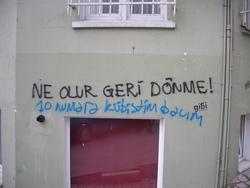 NE OLUR GERİ DÖNME!
10 NUMARA kübistim bacım
gibi